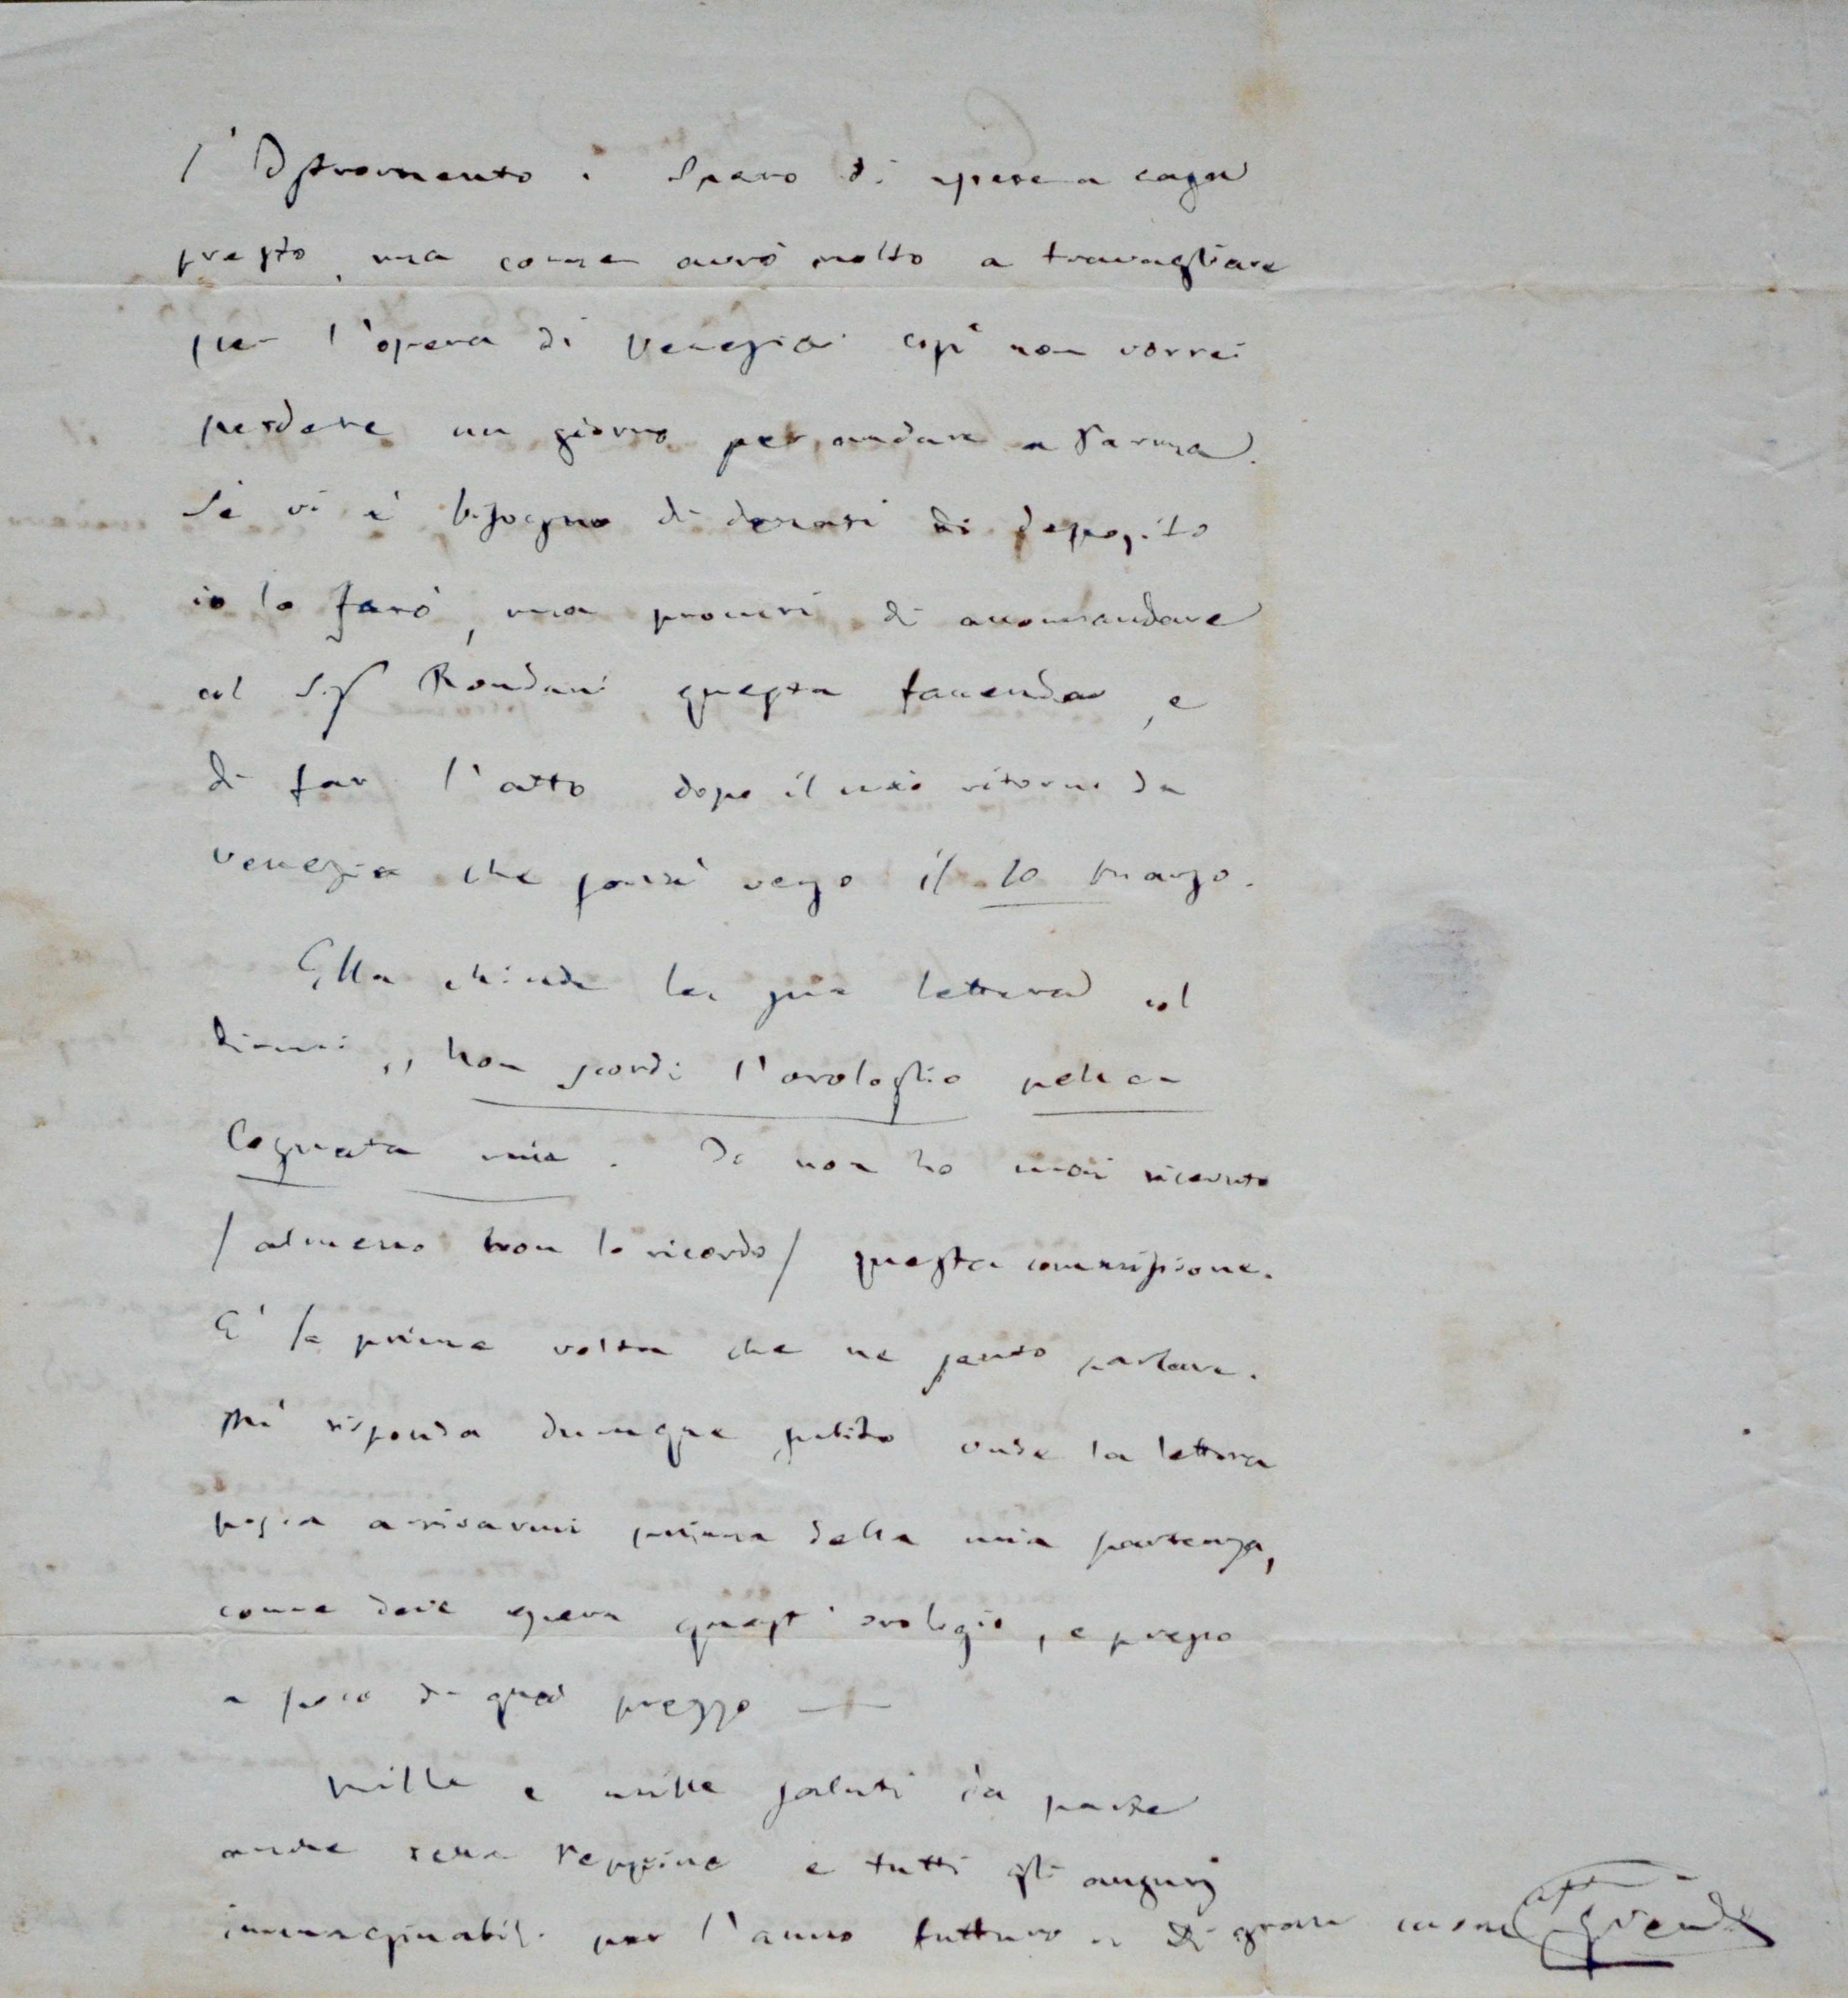 l'Istromento. Spero di essere a casa
presto, ma come avrò molto a travagliare
per l'opera di Venezia così non vorrei
perdere un giorno per andare a Parma.
Se vi è bisogno di denari di deposito
io lo farò, ma procuri di accomandare
al Sig Rondani questa faccenda, e
di far l'atto dopo il mio ritorno da
Venezia che sarà verso il 10 Marzo.
Ella chiude la sua lettera col
dirmi ,, Non scordi l'orologlio pella
Cognata mia. Io non ho mai ricevuto
/almeno non lo ricordo/ questa commissione.
E' la prima volta che ne sento parlare.
Mi risponda dunque subito onde la lettera
possa arrivarmi prima della mia partenza,
come deve essere quest'orologio, e presso
a poco di qual prezzo —
Mille e mille saluti da parte
anche della Peppina e tutti gli augurj
immaginabili per l'anno futturo Di gran cuore G Verdi